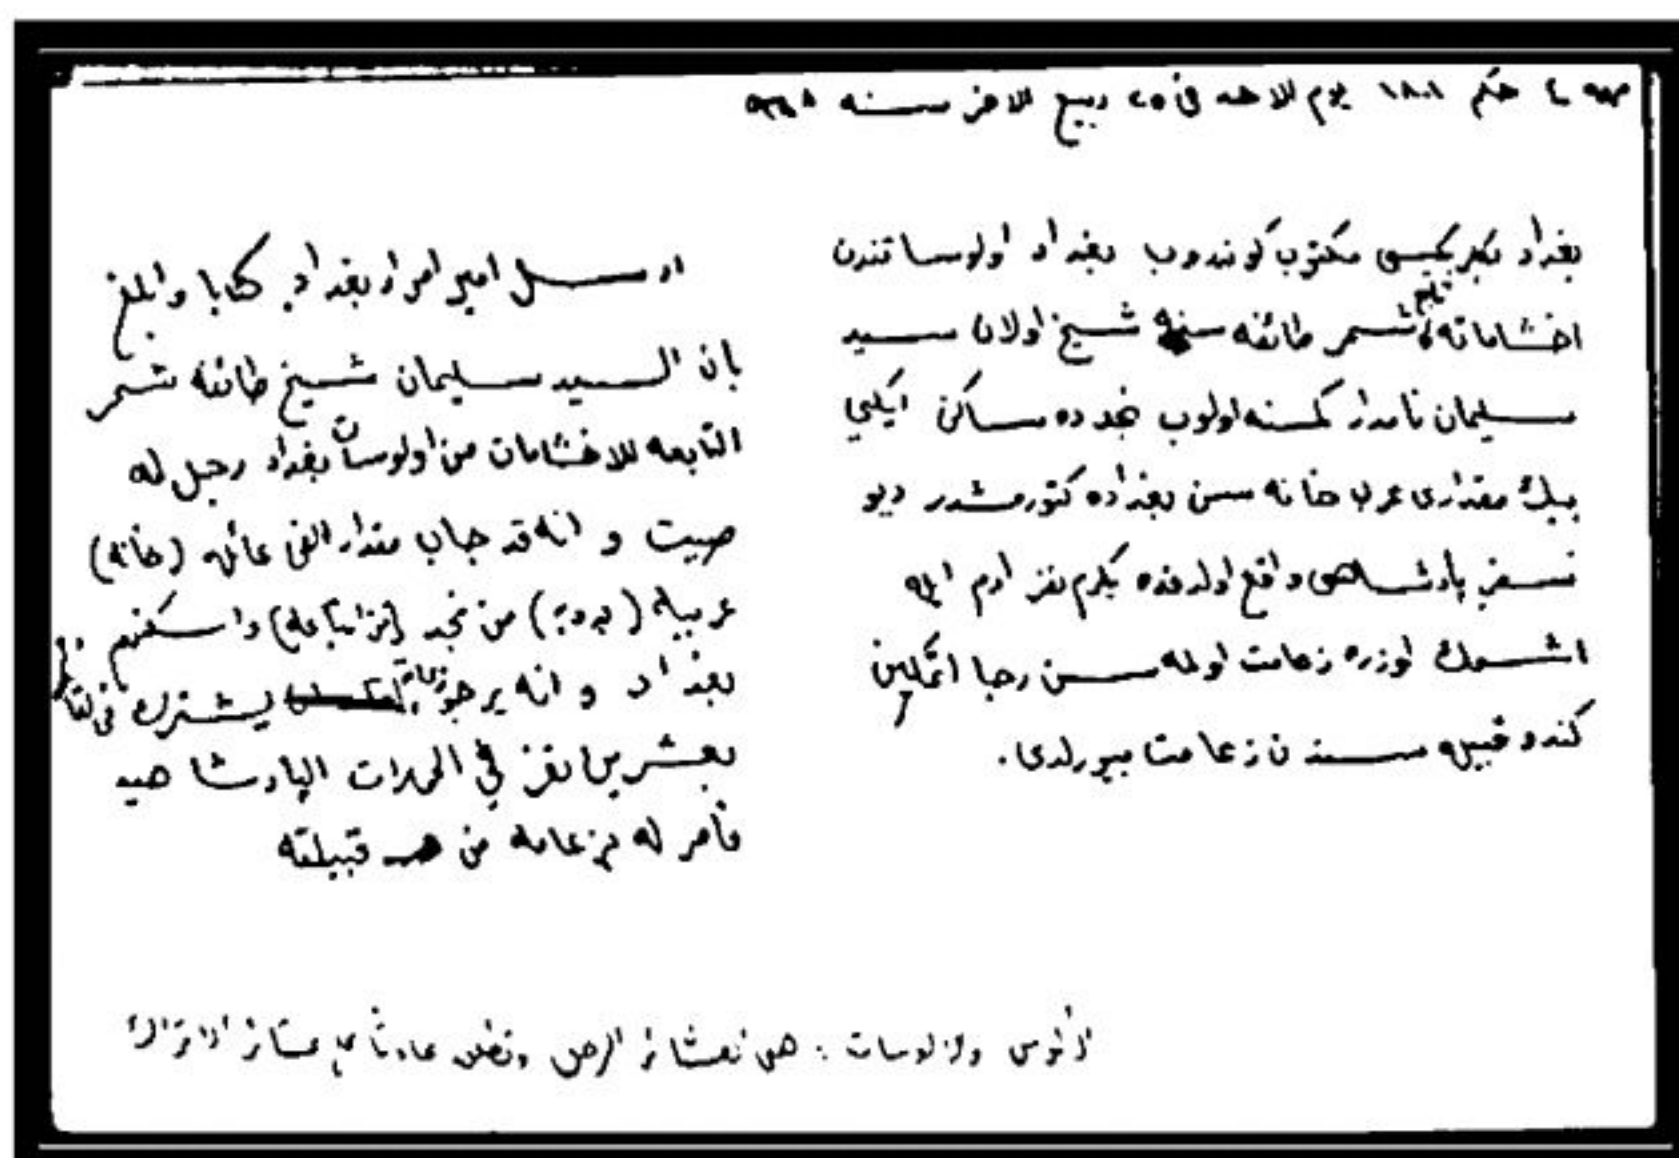 حكم ١٨٠١ يوم الاحد فى ٢٥ ربيع الاخر سنه
بغداد بكلربكيسى مكتوب كوندروب بغداد اولوساتندن
اخشاماته تابع شمر طائفه سنه شيخ اولان سيد
سليمان نامدار كمسنه اولوب نجدده ساكن ايكى
بيك مقدارى عرب خانه سن بغداده كتورمشدر ديو
سفر پادشاهى واقع اولدقده يكرمى نفر ادم ايله
اشمك اوزره زعامت اولمه سن رجا اتمكين
كندو قبيله سندن زعامت بيورلدى.
ارسل امير امراء بغداد كتابا وابلغ
بان السيد سليمان شيخ طائفه شمر
التابعه للاخشامات من اولوسات بغداد رجل له
صيت و انه قد جاب مقدار الفى عائله (خانه)
عربيه (بدويه) من نجد (من اتباعه) واسكنهم
بغداد و انه يرجو يشترك
بعشرين نفر في الحملات البادشاهيه
فأمر له بزعامه من قبيلته
اولوس والاولوسات : هى العشائر الرحل وتطلق عادتاً على عشائر الاتراك